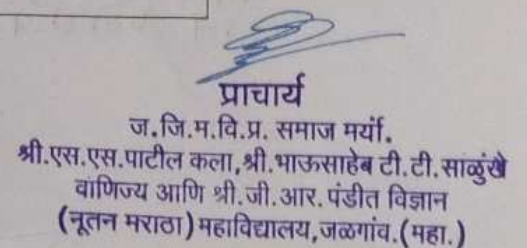 प्राचार्य
ज.जि.म.वि.प्र. समाज मर्या.
श्री.एस.एस.पाटील कला,श्री.भाऊसाहेब टी.टी.साळुंखे
वाणिज्य आणि श्री.जी.आर.पंडीत विज्ञान
(नूतन मराठा) महाविद्यालय,जळगांव.(महा.)